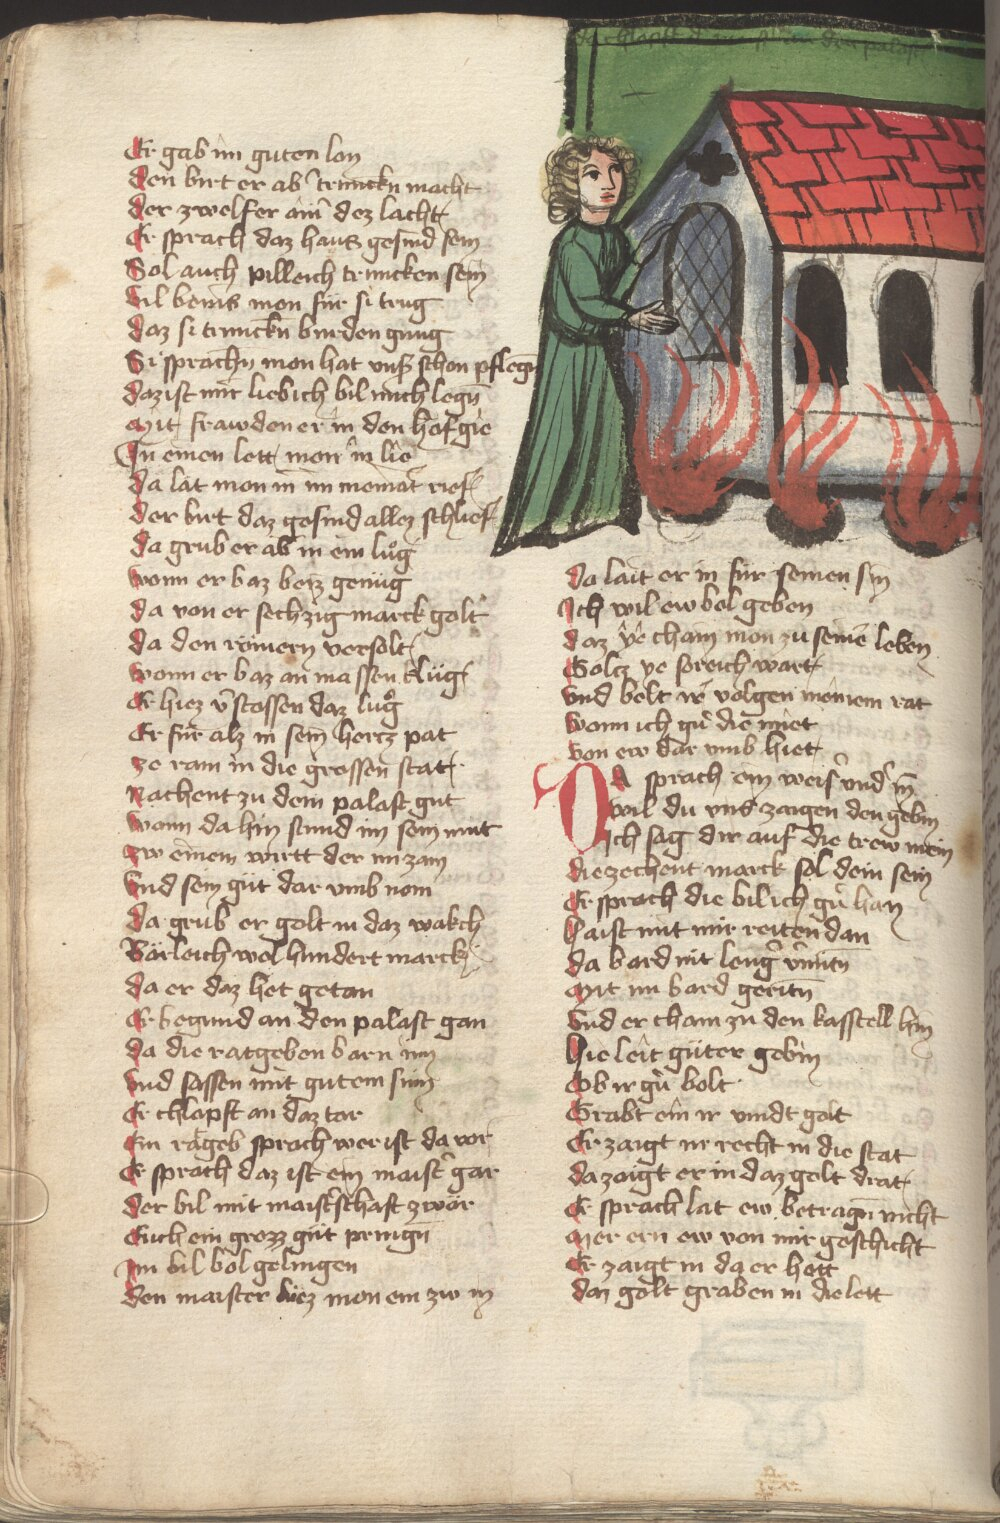 Er gab im guten lon
den birt er ab trincken macht
der zwelfer ainer dez lacht
Er sprach daz haus gesind sein
Sol auch pilleich truncken sein
vil beins mon für si trug
daz si trunckn burden gnug
Si sprachn mon hat uns schon pflegn
daz ist mir lieb ich bil mich legn
Mit frawden er in den hof gie
In einen lett mon in lie
da lat mon in im
der birt daz gesind allez schlief
da grub er ab in ein lug
wonn er baz beiz genüg
da von er sechzig marck golt
da den römern versolt
wonn er baz an massen klüg
Er hiez v̂stossen daz lug
Er für alz in sein hercz pat
ze ram in die grossen stat
Nachent zu dem palast gut
wonn da hin stund im sein mut
zw einem wirtt der im zam
Und sein güt dar umb nom
da grub er golt in daz wakch
Bärleich wol hundert marck
da er daz het getan
Er begund an den palast gan
da die ratgeben barn inn
und sassen mit gutem sinn
Er chlopft an daz tor
Ein ratgeb sprach wer ist da vor
Er sprach daz ist ein maist̂ gar
der bil mit maist̂schaft zwar
Euch ein grozz güt pringn
Im bil bol gelingen
den maister liez mon ein zw in
da lait er in für seinen sin
Ich wil ew bol geben
daz ye cham mon zu seinem leben
Golcz ye so reich wart
und belt ir volgen meinem rat
wonn ich gn̂ die miet
von ew dar umb hiet
Da sprach ein weiŝ und̂ in
wil du uns zaigen den gebin
Ich sag dir auf die trew mein
die zechent marck sol dein sein
Er sprach die bil ich gn̂ han
Haist mit mir reiten dan
da bard nit leng̃ v̂mitn
Mit im bard geritn
und er cham zu den kasstell hin
Hie leit güter gebin
Ob ir gn̂ bolt
Grabt ein ir vindt golt
Er zaigt ir recht in die stat
da zaigt er in daz golt drat
Er sprach lat ew betragn nicht
Mer ern ew von mir geschicht
Er zaigt in da er hett
daz golt graben in die lett